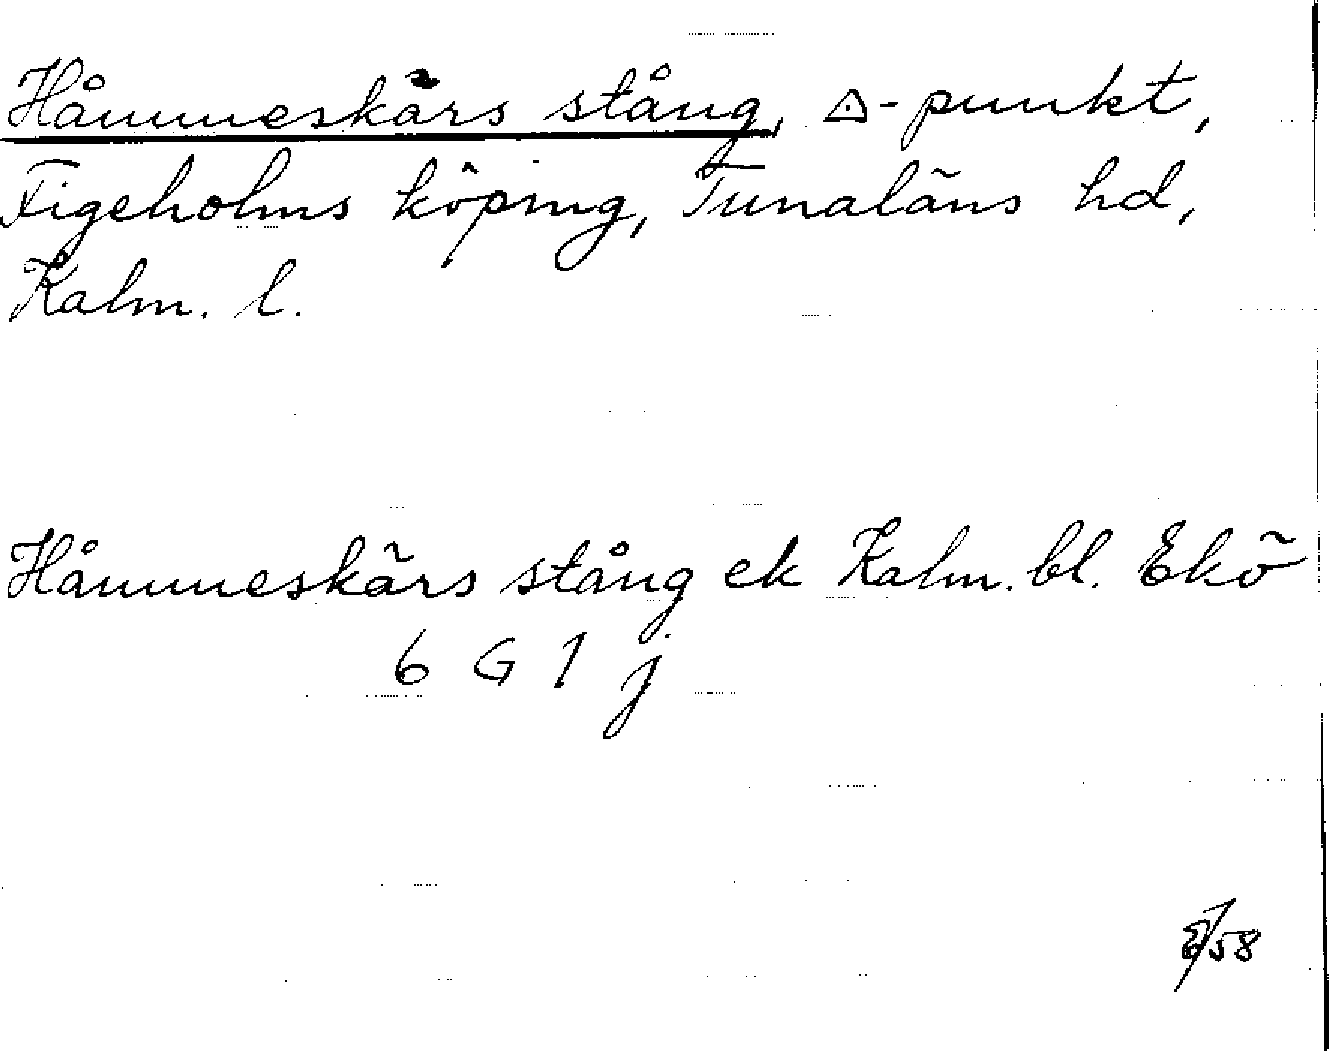 Håmmeskärs stång, △-punkt,
Figeholms köping, Tunaläns hd,
Kalm. l.
Håmmeskärs stång ek Kalm. bl. Ekö
6 G 1 j
58